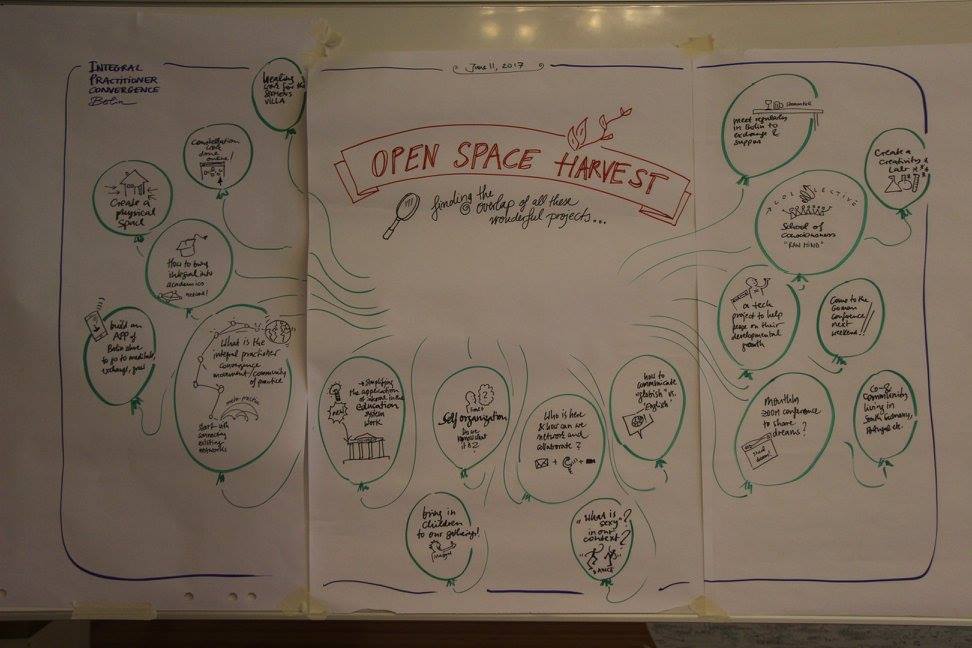 INTEGRAL
PRACTITIONER
CONVERGENCE
Berlin
June 11, 2017
OPEN SPACE HARVEST
finding the
overlap of all these
wonderful projects...
Healing
work for the
VILLA
Constellation
work
done
online!
Create a
physical
space
How to bring
integral into
academics
build an
APP of
Berlin where
to go to meditate,
exchange, grow
What is the
integral practitioner
convergence
movement/community
of practice
meta-practice
Start with
connecting
existing
networks
→ simplifying
the application
of integral in the
education
system
work
new
Self organization
Do we
know what
it is?
Who is here
& how can we
network and
collaborate?
how to
communicate
"globish" vs.
"English"
bring in
children
to our gatherings!
"What is
sexy"?
in our
context?
DANCE
meet regularly
in Berlin to
exchange &
support
Create a
Creativity
Lab
COLLECTIVE
School of
consciousness
"RAW MIND"
a tech
project to help
people on their
developmental
growth
Come to the
German
conference
next
weekend!!
Monthly
zoom conference
to share
dreams?
Co-
Community
living in
South Germany,
Portugal etc.